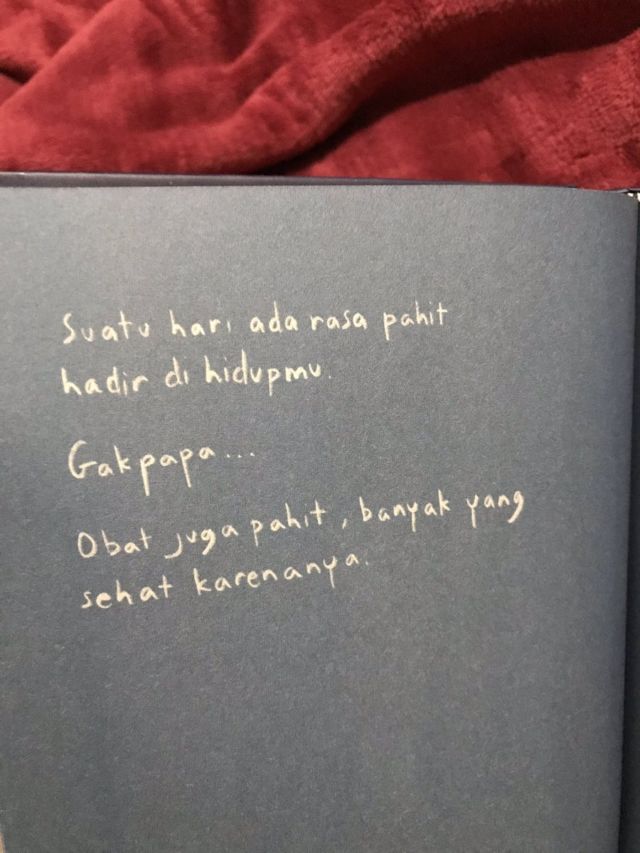 Suatu hari ada rasa pahit
hadir di hidupmu.
Gakpapa...
Obat juga pahit, banyak yang
sehat karenanya.